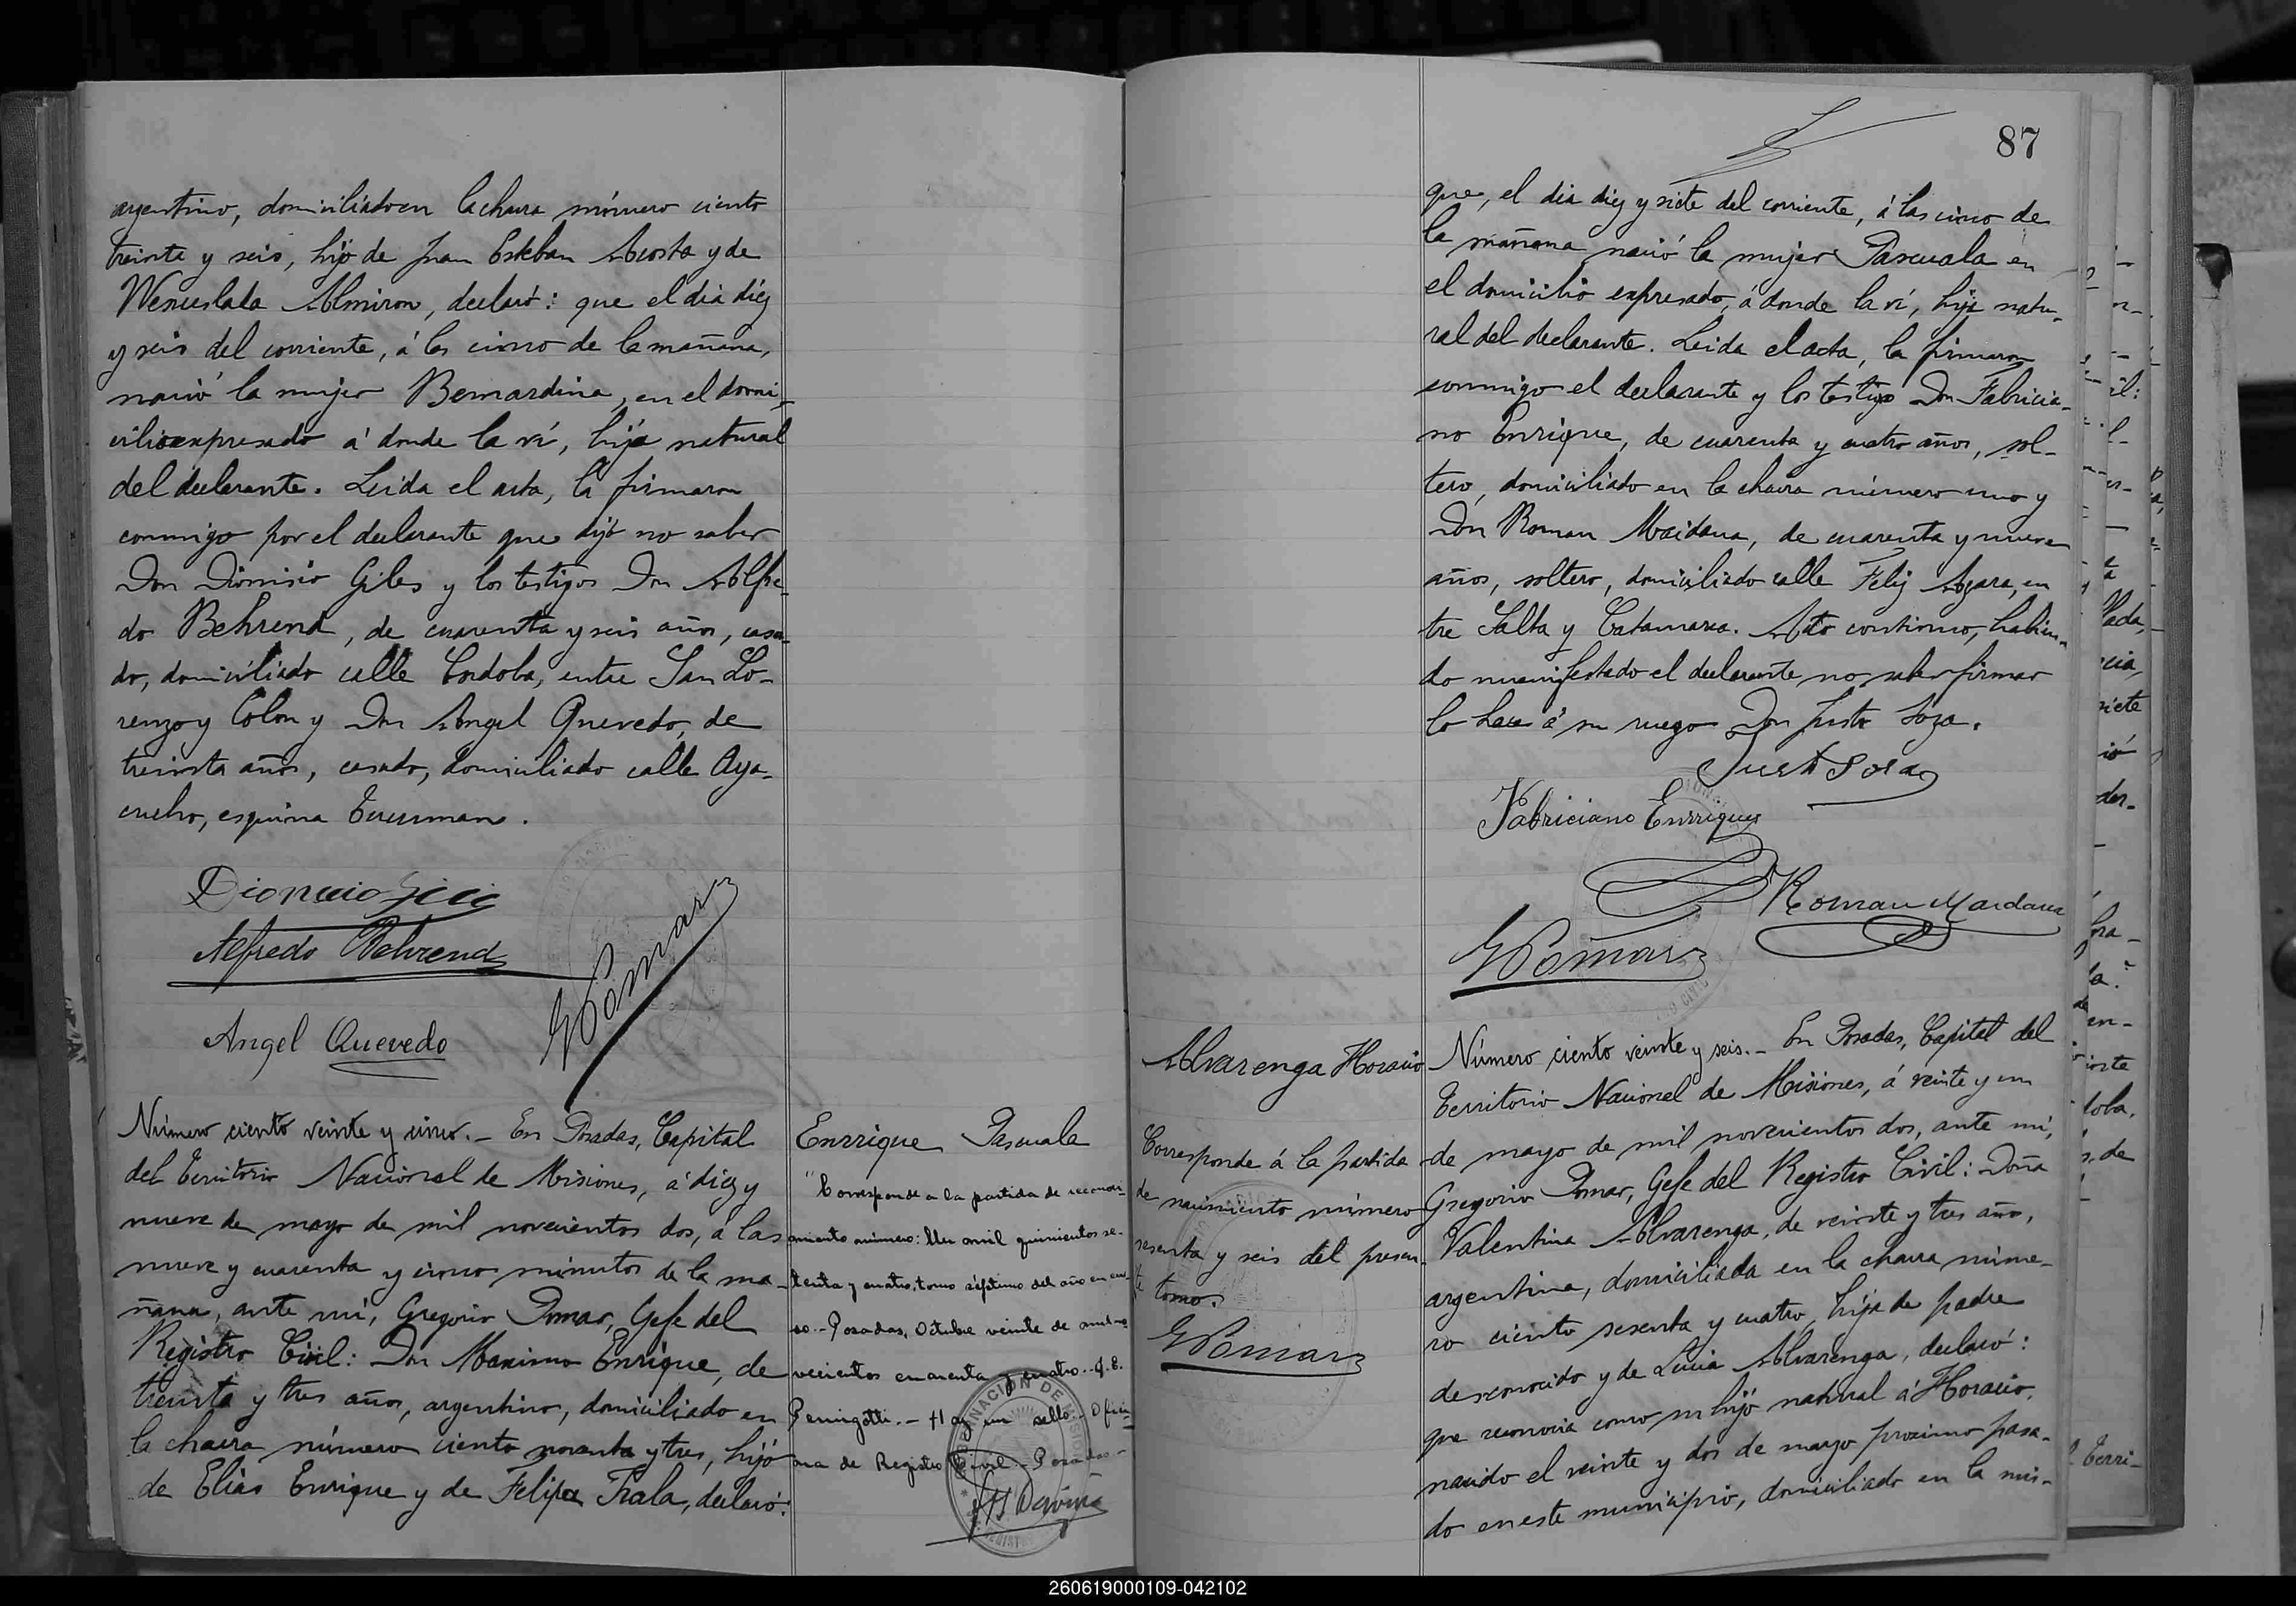 argentino, domiciliado en la chacra número ciento
treinta y seis, hijo de Juan Esteban Acosta y de
Wenceslada Almiron, declaró: que el dia diez
y seis del corriente, á las cinco de la mañana,
nació la mujer Bernardina, en el domi-
cilio expresado á donde la ví, hija natural
del declarante. Leida el acta, la firmaron
conmigo por el declarante que dijo no saber
Don Dionisio Giles y los testigos Don Alfre-
do Behrend, de cuarenta y seis años, casa-
do, domiciliado calle Cordoba, entre San Lo-
renzo y Colon y Don Angel Quevedo, de
treinta años, casado, domiciliado calle Aya-
cucho, esquina Tucuman.
Dionicio
Alfredo Behrend
GPomar
Angel Quevedo
Número ciento veinte y cinco.- En Posadas, Capital
del Territorio Nacional de Misiones, á diez y
nueve de mayo de mil novecientos dos, á las
nueve y cuarenta y cinco minutos de la ma-
ñana, ante mí, Gregorio Pomar, Gefe del
Registro Civil: Don Maximo Enrique, de
treinta y tres años, argentino, domiciliado en
la chacra número ciento noventa y tres, hijo
de Elias Enrique y de Felipa Trala, declaró:
Enrrique Pascuala
"Corresponde a la partida de reconoci-
miento número: Un mil quinientos se-
tenta y cuatro, tomo séptimo del año en cur-
so.- Posadas, Octubre veinte de mil no-
vecientos cuarenta y cuatro.- J. E.
Penigotti.- Hay un sello:- Ofici-
na de Registro Civil - Posadas -
87
que, el dia diez y siete del corriente, á las cinco de
la mañana nació la mujer Pascuala en
el domicilio expresado, á donde la ví, hija natu-
ral del declarante. Leida el acta, la firmaron
conmigo el declarante y los testigos Don Fabricia-
no Enrique, de cuarenta y cuatro años, sol-
tero, domiciliado en la chacra número uno y
Don Roman Maidana, de cuarenta y nueve
años, soltero, domiciliado calle Feliz Azara, en
tre Salta y Catamarca. Acto continuo, habien-
do manifestado el declarante no saber firmar
lo hace á su ruego Don Justo Soza.
Justo Sosa
Fabriciano Enrriquez
Roman Maidana
GPomar
Alvarenga Horacio
Corresponde á la partida
de nacimiento número
sesenta y seis del presen-
te tomo.
GPomar
Número ciento veinte y seis.- En Posadas, Capital del
Territorio Nacional de Misiones, á veinte y un
de mayo de mil novecientos dos, ante mí,
Gregorio Pomar, Gefe del Registro Civil: Doña
Valentina Alvarenga, de veinte y tres años,
argentina, domiciliada en la chacra núme-
ro ciento sesenta y cuatro, hija de padre
desconocido y de Lucia Alvarenga, declaró:
que reconocia como su hijo natural á Horacio,
nacido el veinte y dos de mayo proximo pasa-
do en este municipio, domiciliado en la mis-
260619000109-042102